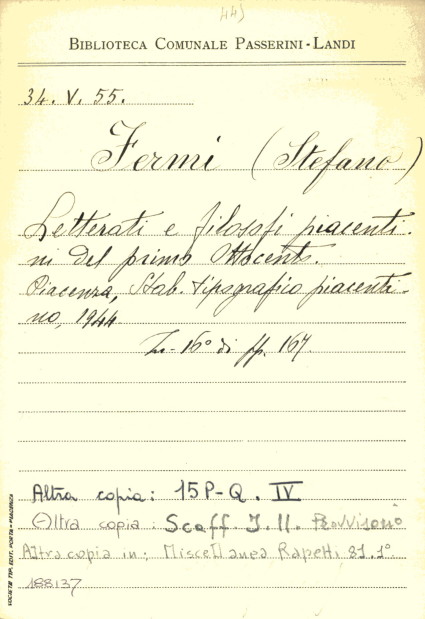 449
BIBLIOTECA COMUNALE PASSERINI-LANDI
34. V. 55.
Fermi (Stefano)
Letterati e filosofi piacenti-
ni del primo Ottocento.
Piacenza, Stab. tipografico piacenti-
no, 1944
In-16° di pp. 167.
Altra copia: 15P-Q. IV
Altra copia: Scaff. I. 11. Provvisorio
Altra copia in: Miscellanea Rapetti 81. 1°
188137
SOCIETÀ TIP. EDIT. PORTA - PIACENZA